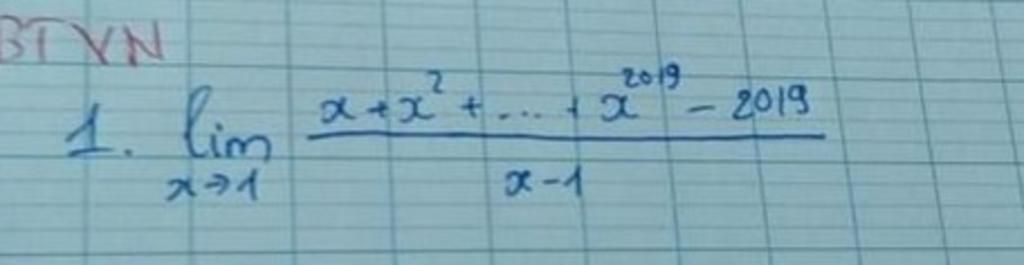 BTVN
1. lim x→1 (x + x² + ... + x²⁰¹⁹ − 2019) / (x − 1)